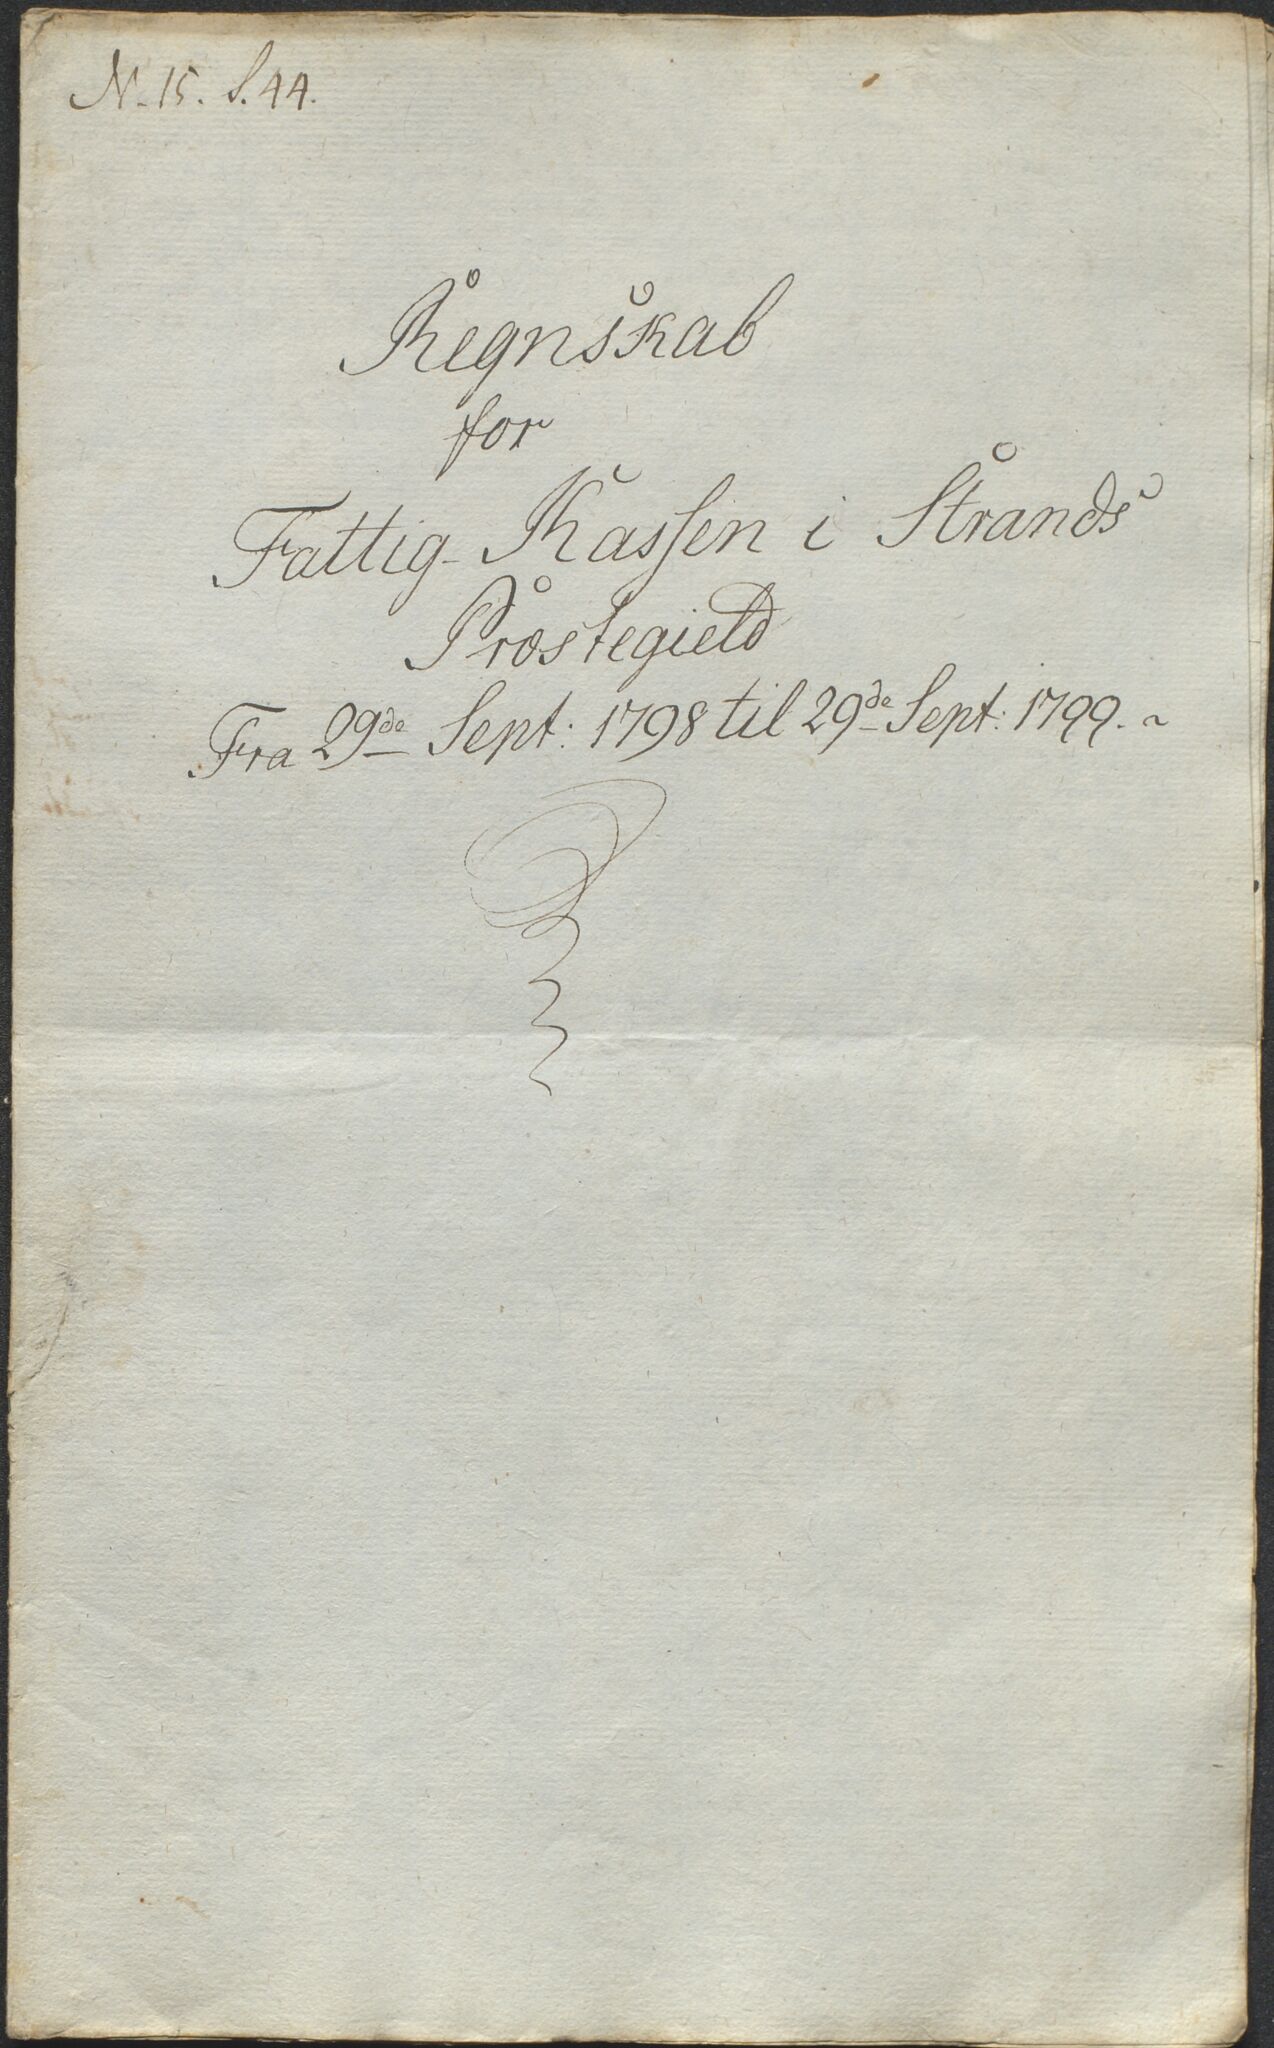 N. 15. S. 44.
Regnskab
for
Fattig-Kassen i Strands
Præstegield
Fra 29de Sept: 1798 til 29de Sept: 1799.